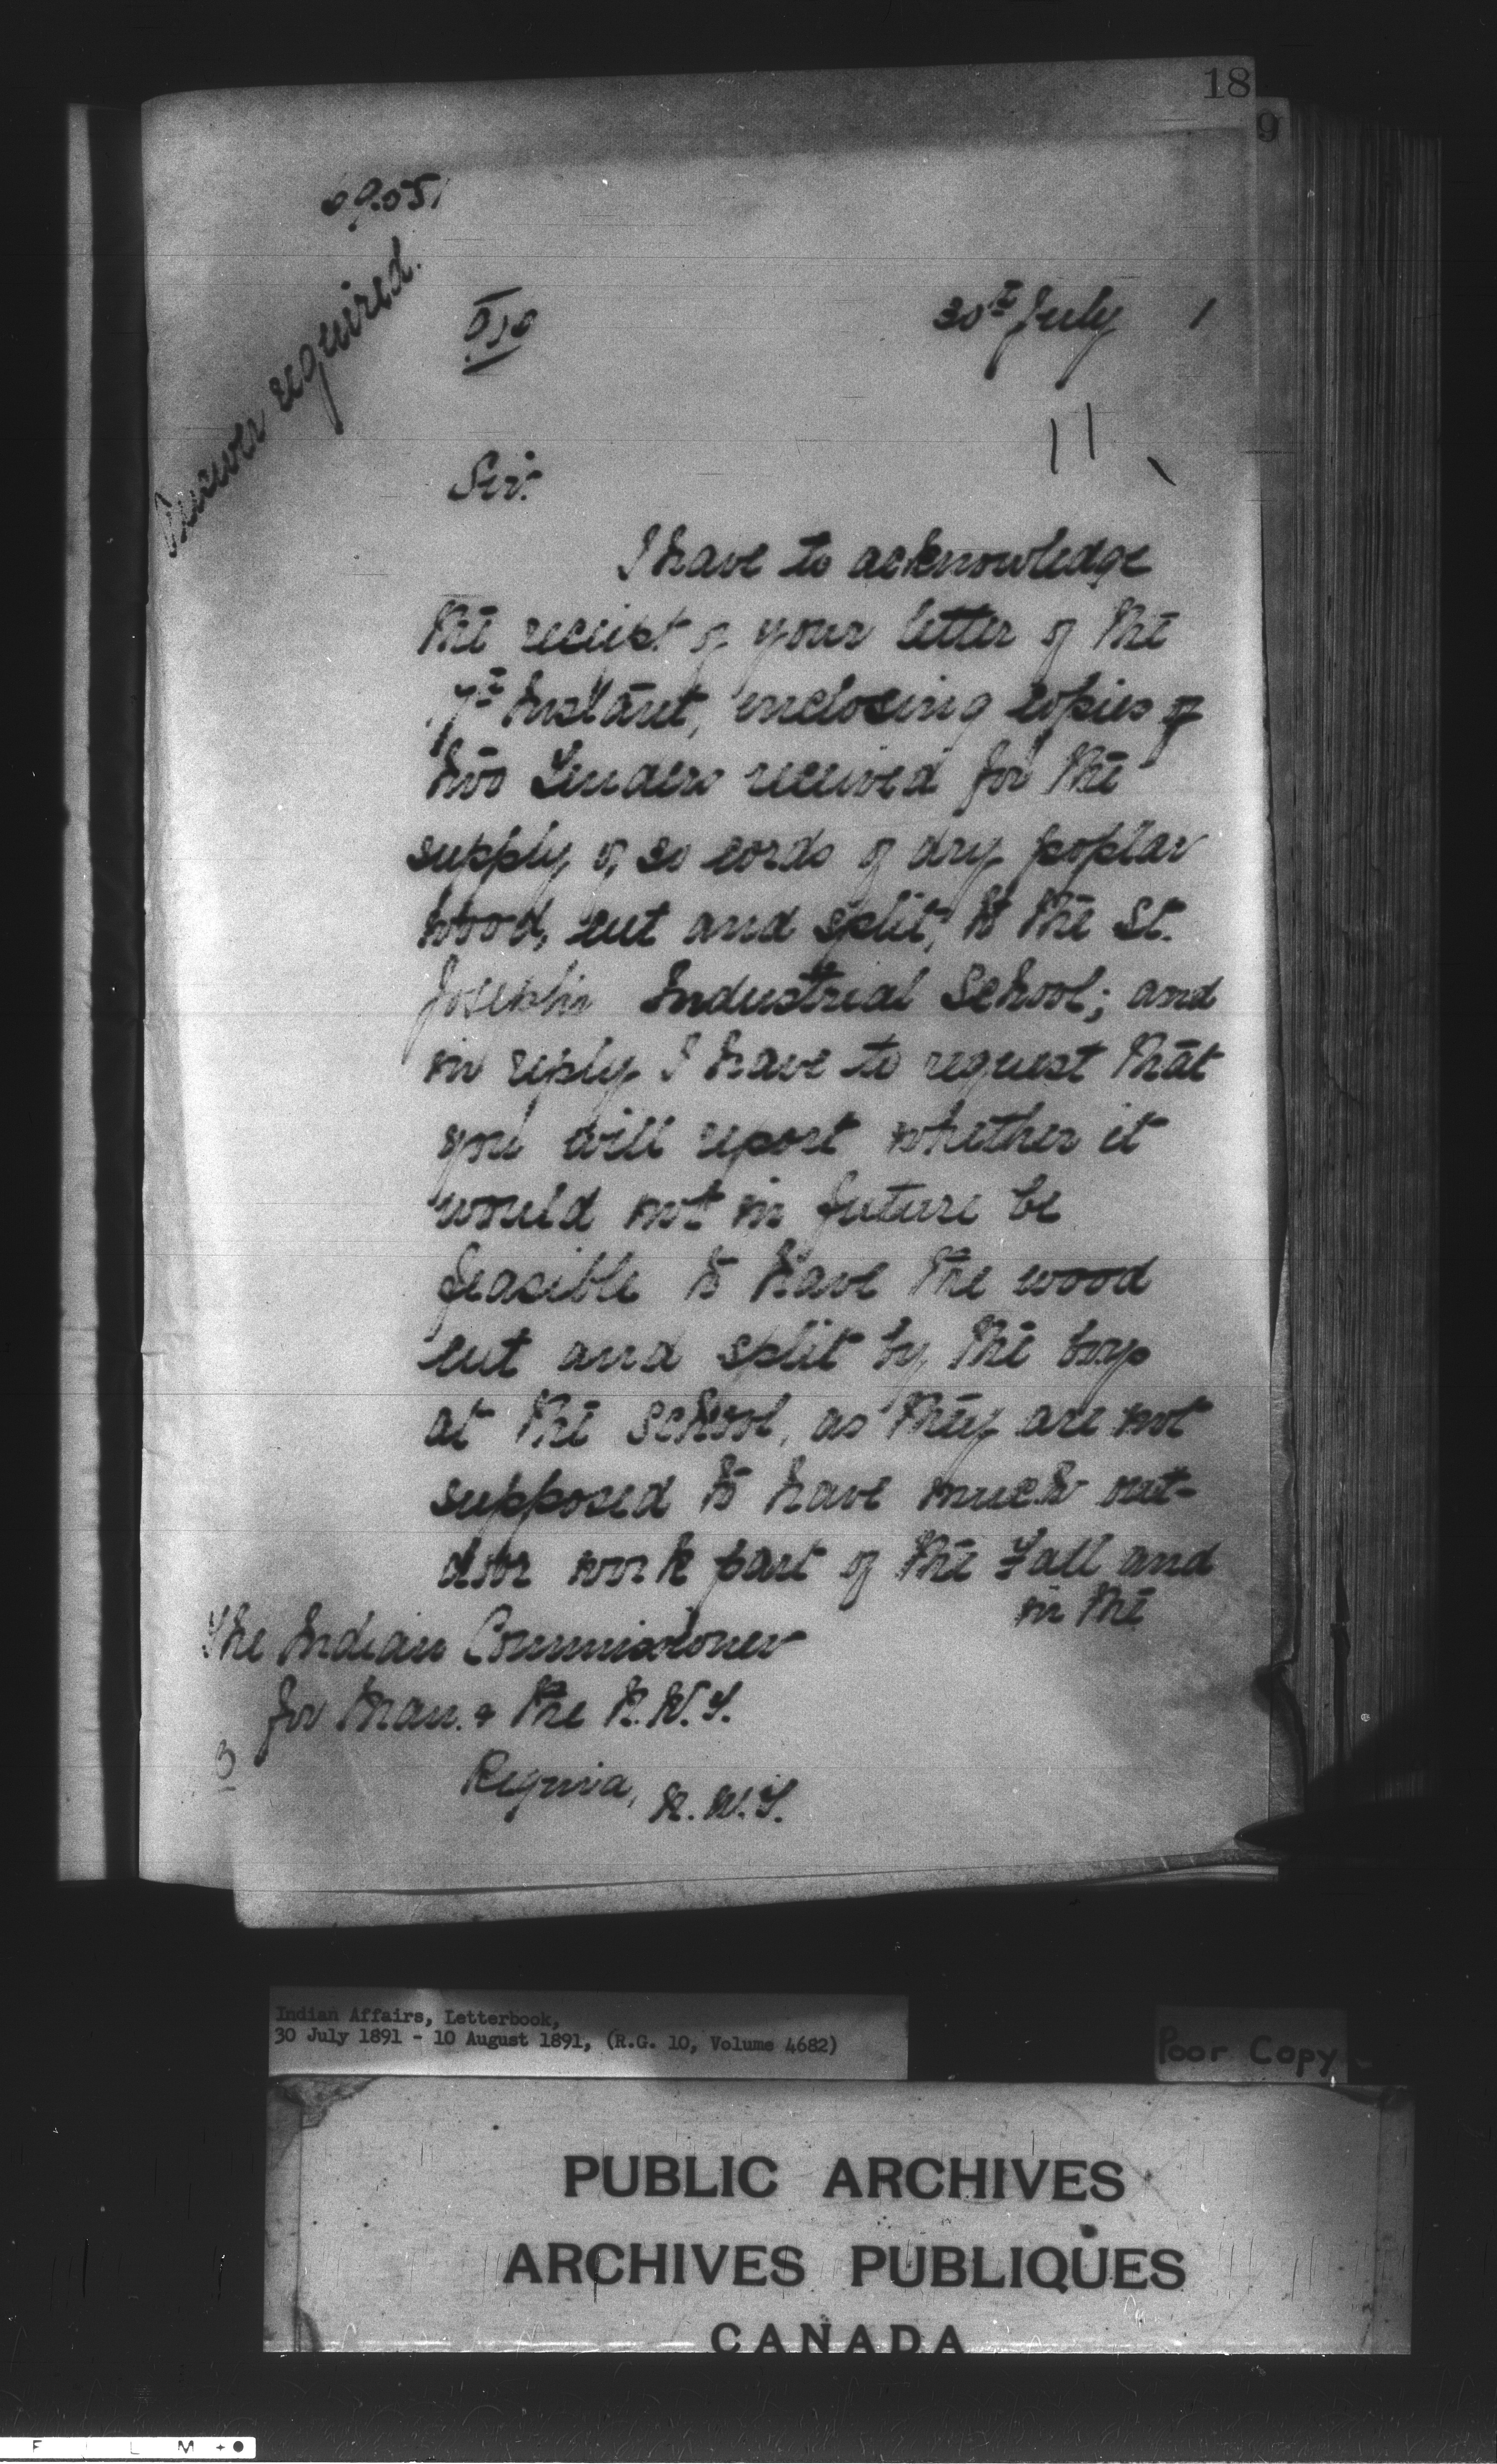 18
9
Answer required.
30th July 1
Sir:
I have to acknowledge
the receipt of your letter of the
Instant, enclosing copies of
two Tenders received for the
supply of 30 cords of dry poplar
wood, cut and split, to the St.
Joseph's Industrial School; and
in reply I have to request that
you will report whether it
would not in future be
feasible to have the wood
cut and split by the boys
at the School, as they are not
supposed to have much out-
door work part of the Fall and
in the
The Indian Commissioner
for Man. & the N.W.T.
Regina, N.W.T.
Indian Affairs, Letterbook,
30 July 1891 - 10 August 1891, (R.G. 10, Volume 4682)
Poor Copy
PUBLIC ARCHIVES
ARCHIVES PUBLIQUES
CANADA
F L M